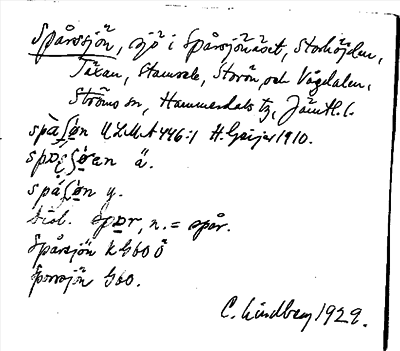 Spårsjön, sjö i Spårsjönäset, Storhöjden,
Täxan, Stamsele, Storön och Vågdalen,
Ströms sn, Hammerdals tg, Jämtl. l.
spå̀ʃø̣n ULMA 446:1 H. Geijer 1910.
ʃø̣an ä.
spáʃø̣n y.
Dial. spɒr, n. = spår.
Spårsjön k G60 Ö
Sporrsjön G60.
C. Lindberg 1929.